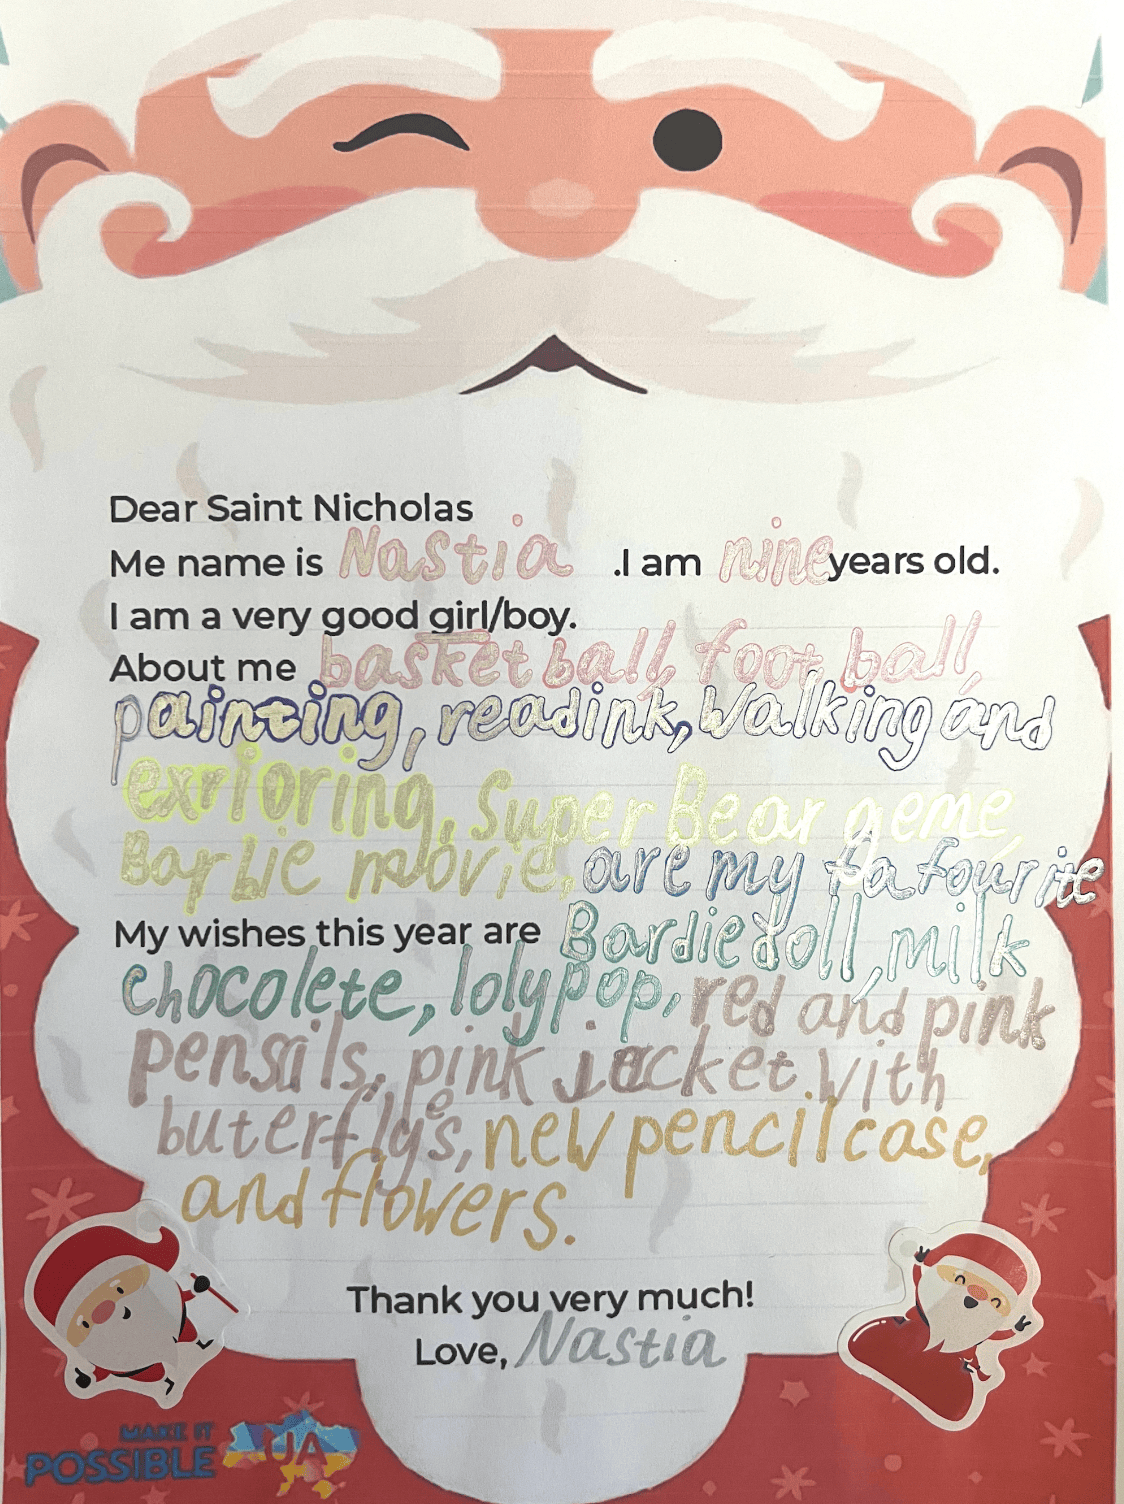 Dear Saint Nicholas
Me name is Nastia .I am nine years old.
I am a very good girl/boy.
About me basketball, football,
painting, readink, Walking and
exrioring, Super Bear geme,
Barbie movie, are my fafourite
My wishes this year are Bardie doll, milk
chocolete, lolypop, red and pink
pensils, pink jacket with
buterflys, new pencil case,
and flowers.
Thank you very much!
Love, Nastia
MAKE IT
POSSIBLE UA